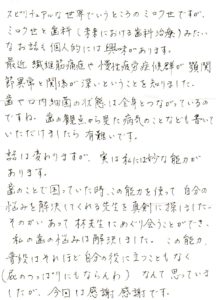 スピリチュアルな世界でいうところのミロク世ですが、
ミロク世と歯科(未来における歯科治療)みたい
なお話も個人的には興味があります。
最近 線維筋痛症や慢性疲労症候群が 顎関
節異常と関係が深いということを知りました。
歯や口内細菌の状態は全身とつながっているの
ですね。歯の観点から見た病気のことなども書いて
いただけましたら 有難いです。
話は変わりますが、実は私には妙な能力が
あります。
歯のことで困っていた時、この能力を使って 自分の
悩みを解決してくれる先生を真剣に探しました。
そのかいあって 林先生にめぐり会うことができ、
私の歯の悩みは解決しました。 この能力、
普段はそれほど自分の役に立つこともなく
(屁のつっぱりにもならんわ) なんて思っていま
したが、今回は感謝感謝です。